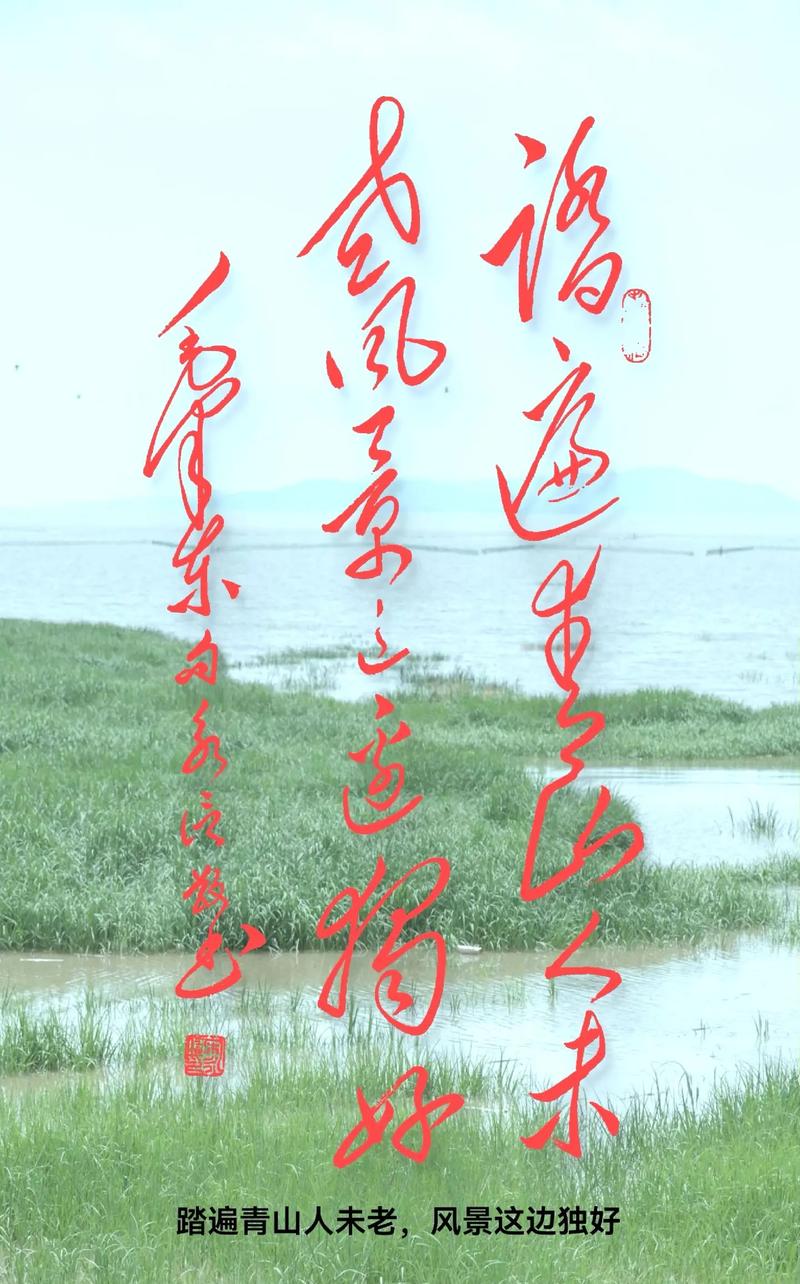 踏遍青山人未
老风景这邊獨好
毛澤东句永书
踏遍青山人未老，风景这边独好